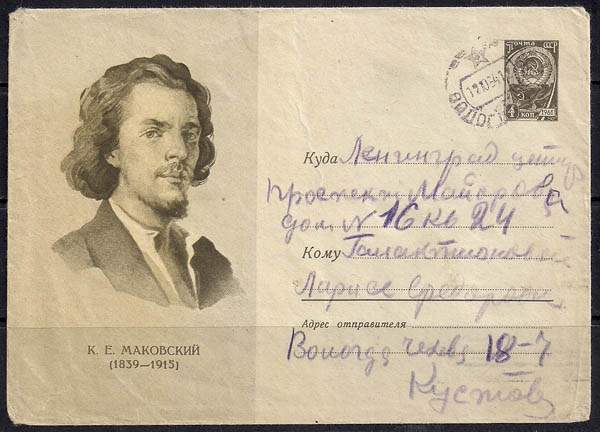 ПОЧТА СССР
4 КОП.
ВОЛОГДА
Куда Ленинград центр
проспект Майорова
дом N 16 кв 24
Кому
Ларисе
Адрес отправителя
Вологда 18-7
Кустов
К. Е. МАКОВСКИЙ
(1839—1915)